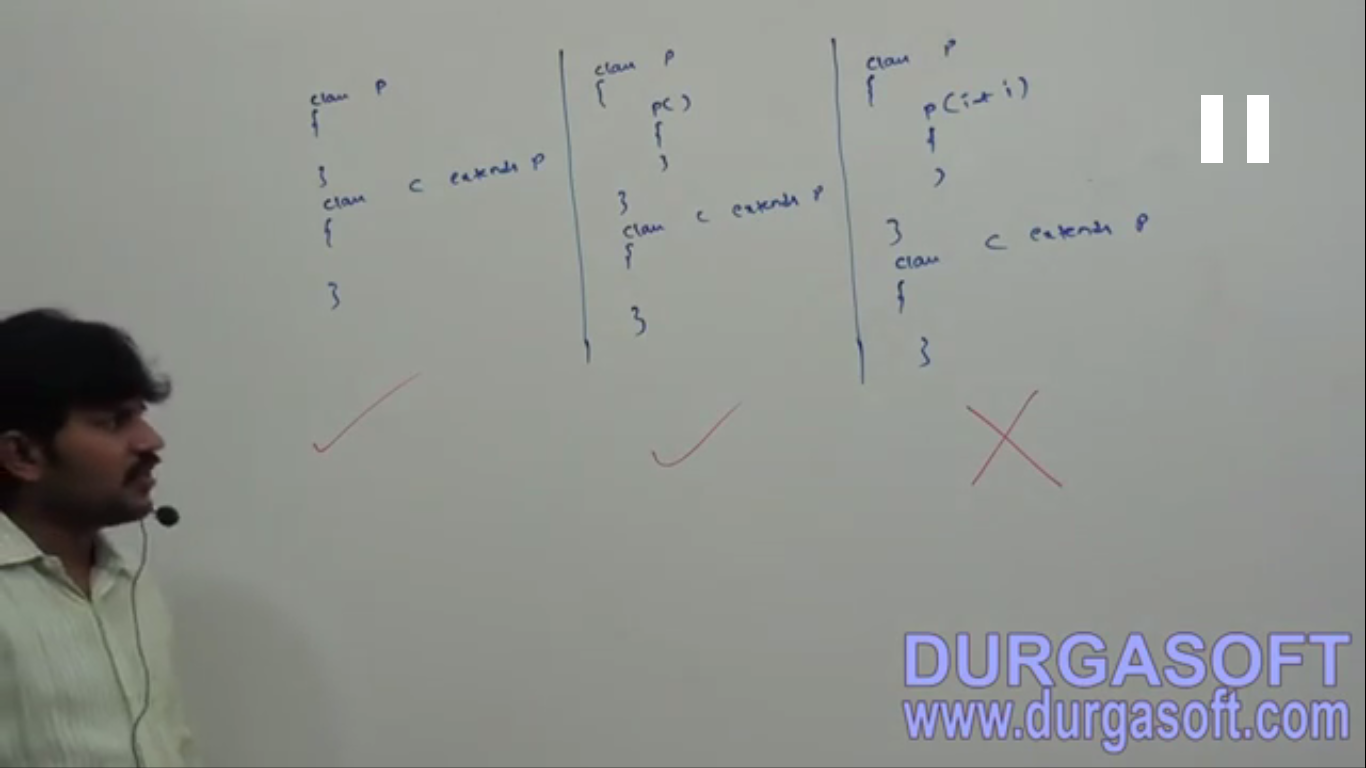 class P
{
}
class C extends P
{
}
class P
{
P()
{
}
}
class C extends P
{
}
class P
{
P(int i)
{
}
}
class C extends P
{
}
DURGASOFT
www.durgasoft.com